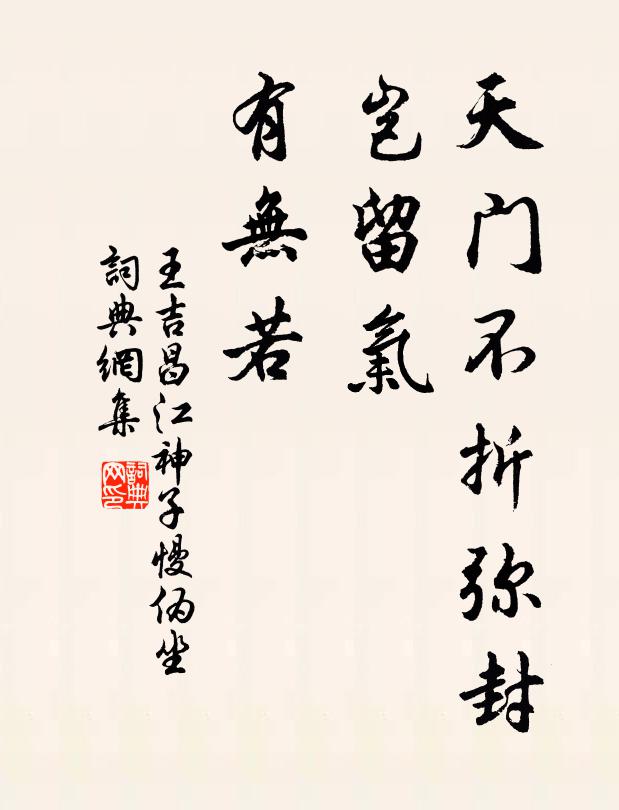 天門不折弥封
豈留氣
有無若
王吉昌江神子慢偽坐
詞典網集
詞典網印